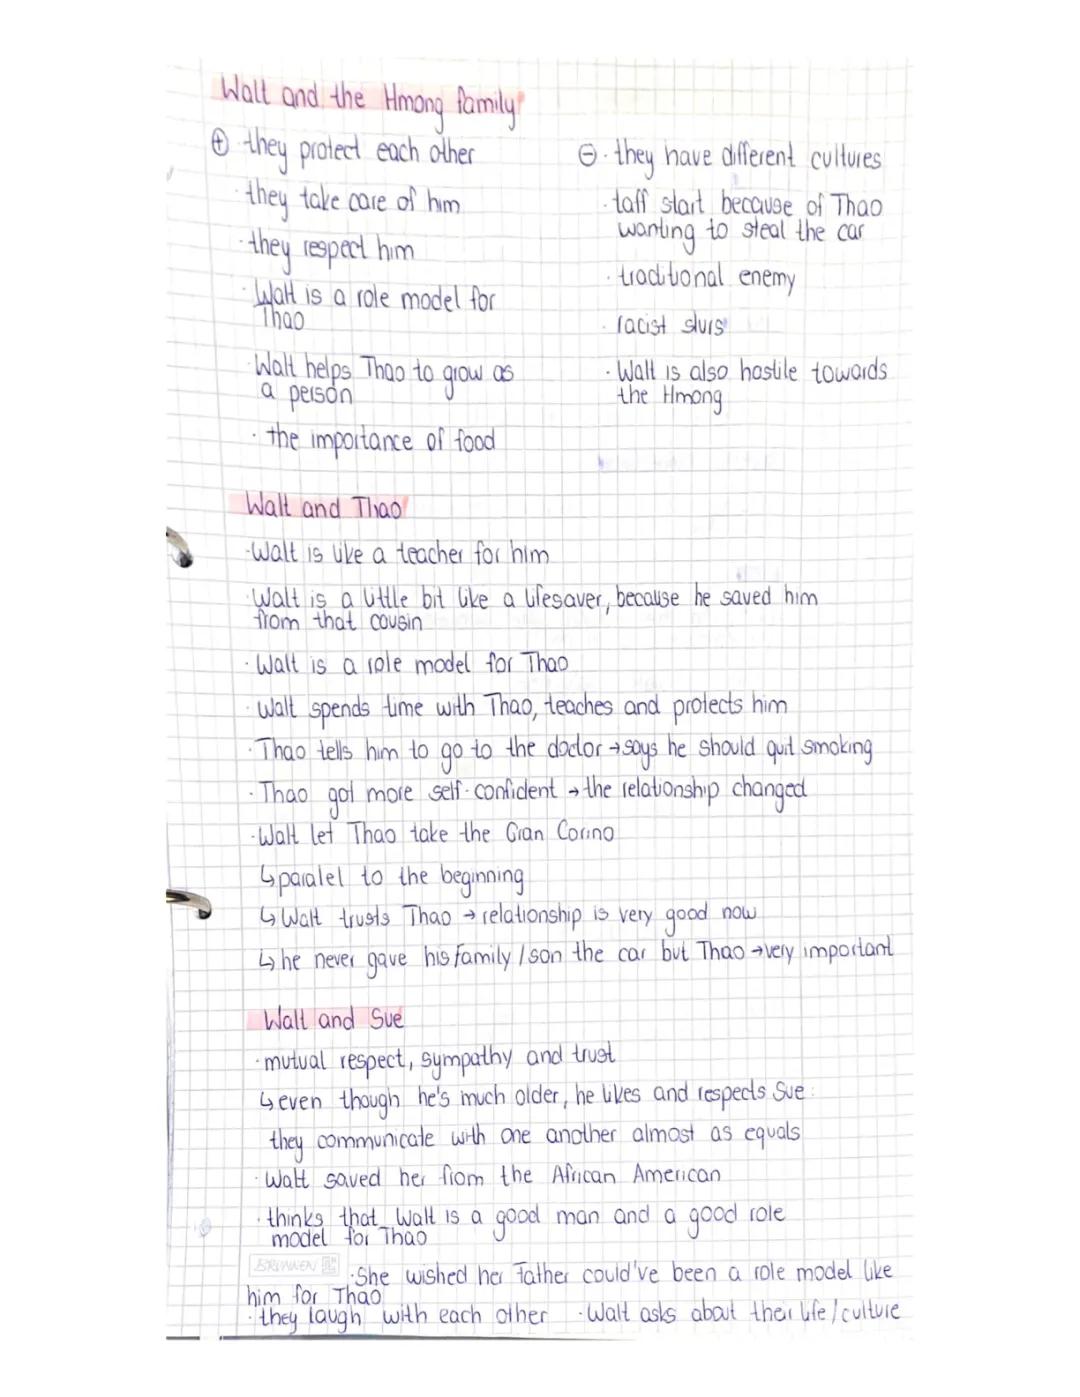 Walt and the Hmong family
⊕ · they protect each other
· they take care of him
· they respect him
· Walt is a role model for
Thao
· Walt helps Thao to grow as
a person
· the importance of food
⊖ · they have different cultures
· taff start because of Thao
wanting to steal the car
· traditional enemy
· racist slurs
· Walt is also hostile towards
the Hmong
Walt and Thao
· Walt is like a teacher for him
· Walt is a little bit like a lifesaver, because he saved him
from that cousin
· Walt is a role model for Thao
· Walt spends time with Thao, teaches and protects him
· Thao tells him to go to the doctor → says he should quit smoking
· Thao got more self-confident → the relationship changed
· Walt let Thao take the Gran Corino
↳ paralel to the beginning
↳ Walt trusts Thao → relationship is very good now
↳ he never gave his family / son the car but Thao → very important
Walt and Sue
· mutual respect, sympathy and trust
↳ even though he's much older, he likes and respects Sue :
they communicate with one another almost as equals
· Walt saved her from the African American
· thinks that Walt is a good man and a good role
model for Thao
BRUNNEN
· She wished her father could've been a role model like
him for Thao
· they laugh with each other · Walt asks about their life / culture